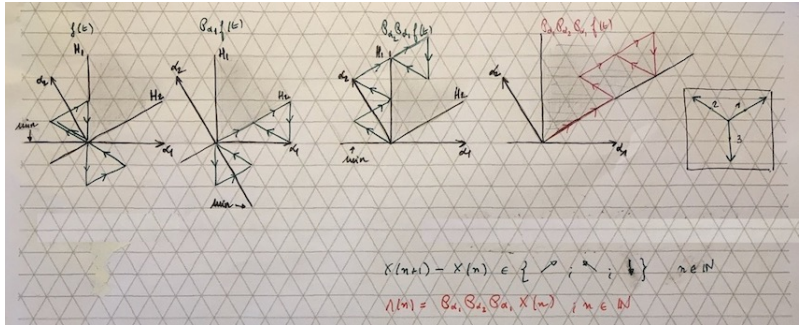 f(t)
H₁
α₂
H₂
min
α₁
P_α₁ f(t)
H₁
α₂
H₂
α₁
min
P_α₂ P_α₁ f(t)
H₁
α₂
H₂
α₁
min
P_α₁ P_α₂ P_α₁ f(t)
α₂
α₁
2 1
3
X(n+1) - X(n) ∈ { ↗ ; ↖ ; ↓ } n ∈ ℕ
Λ(n) = P_α₁ P_α₂ P_α₁ X(n) ; n ∈ ℕ